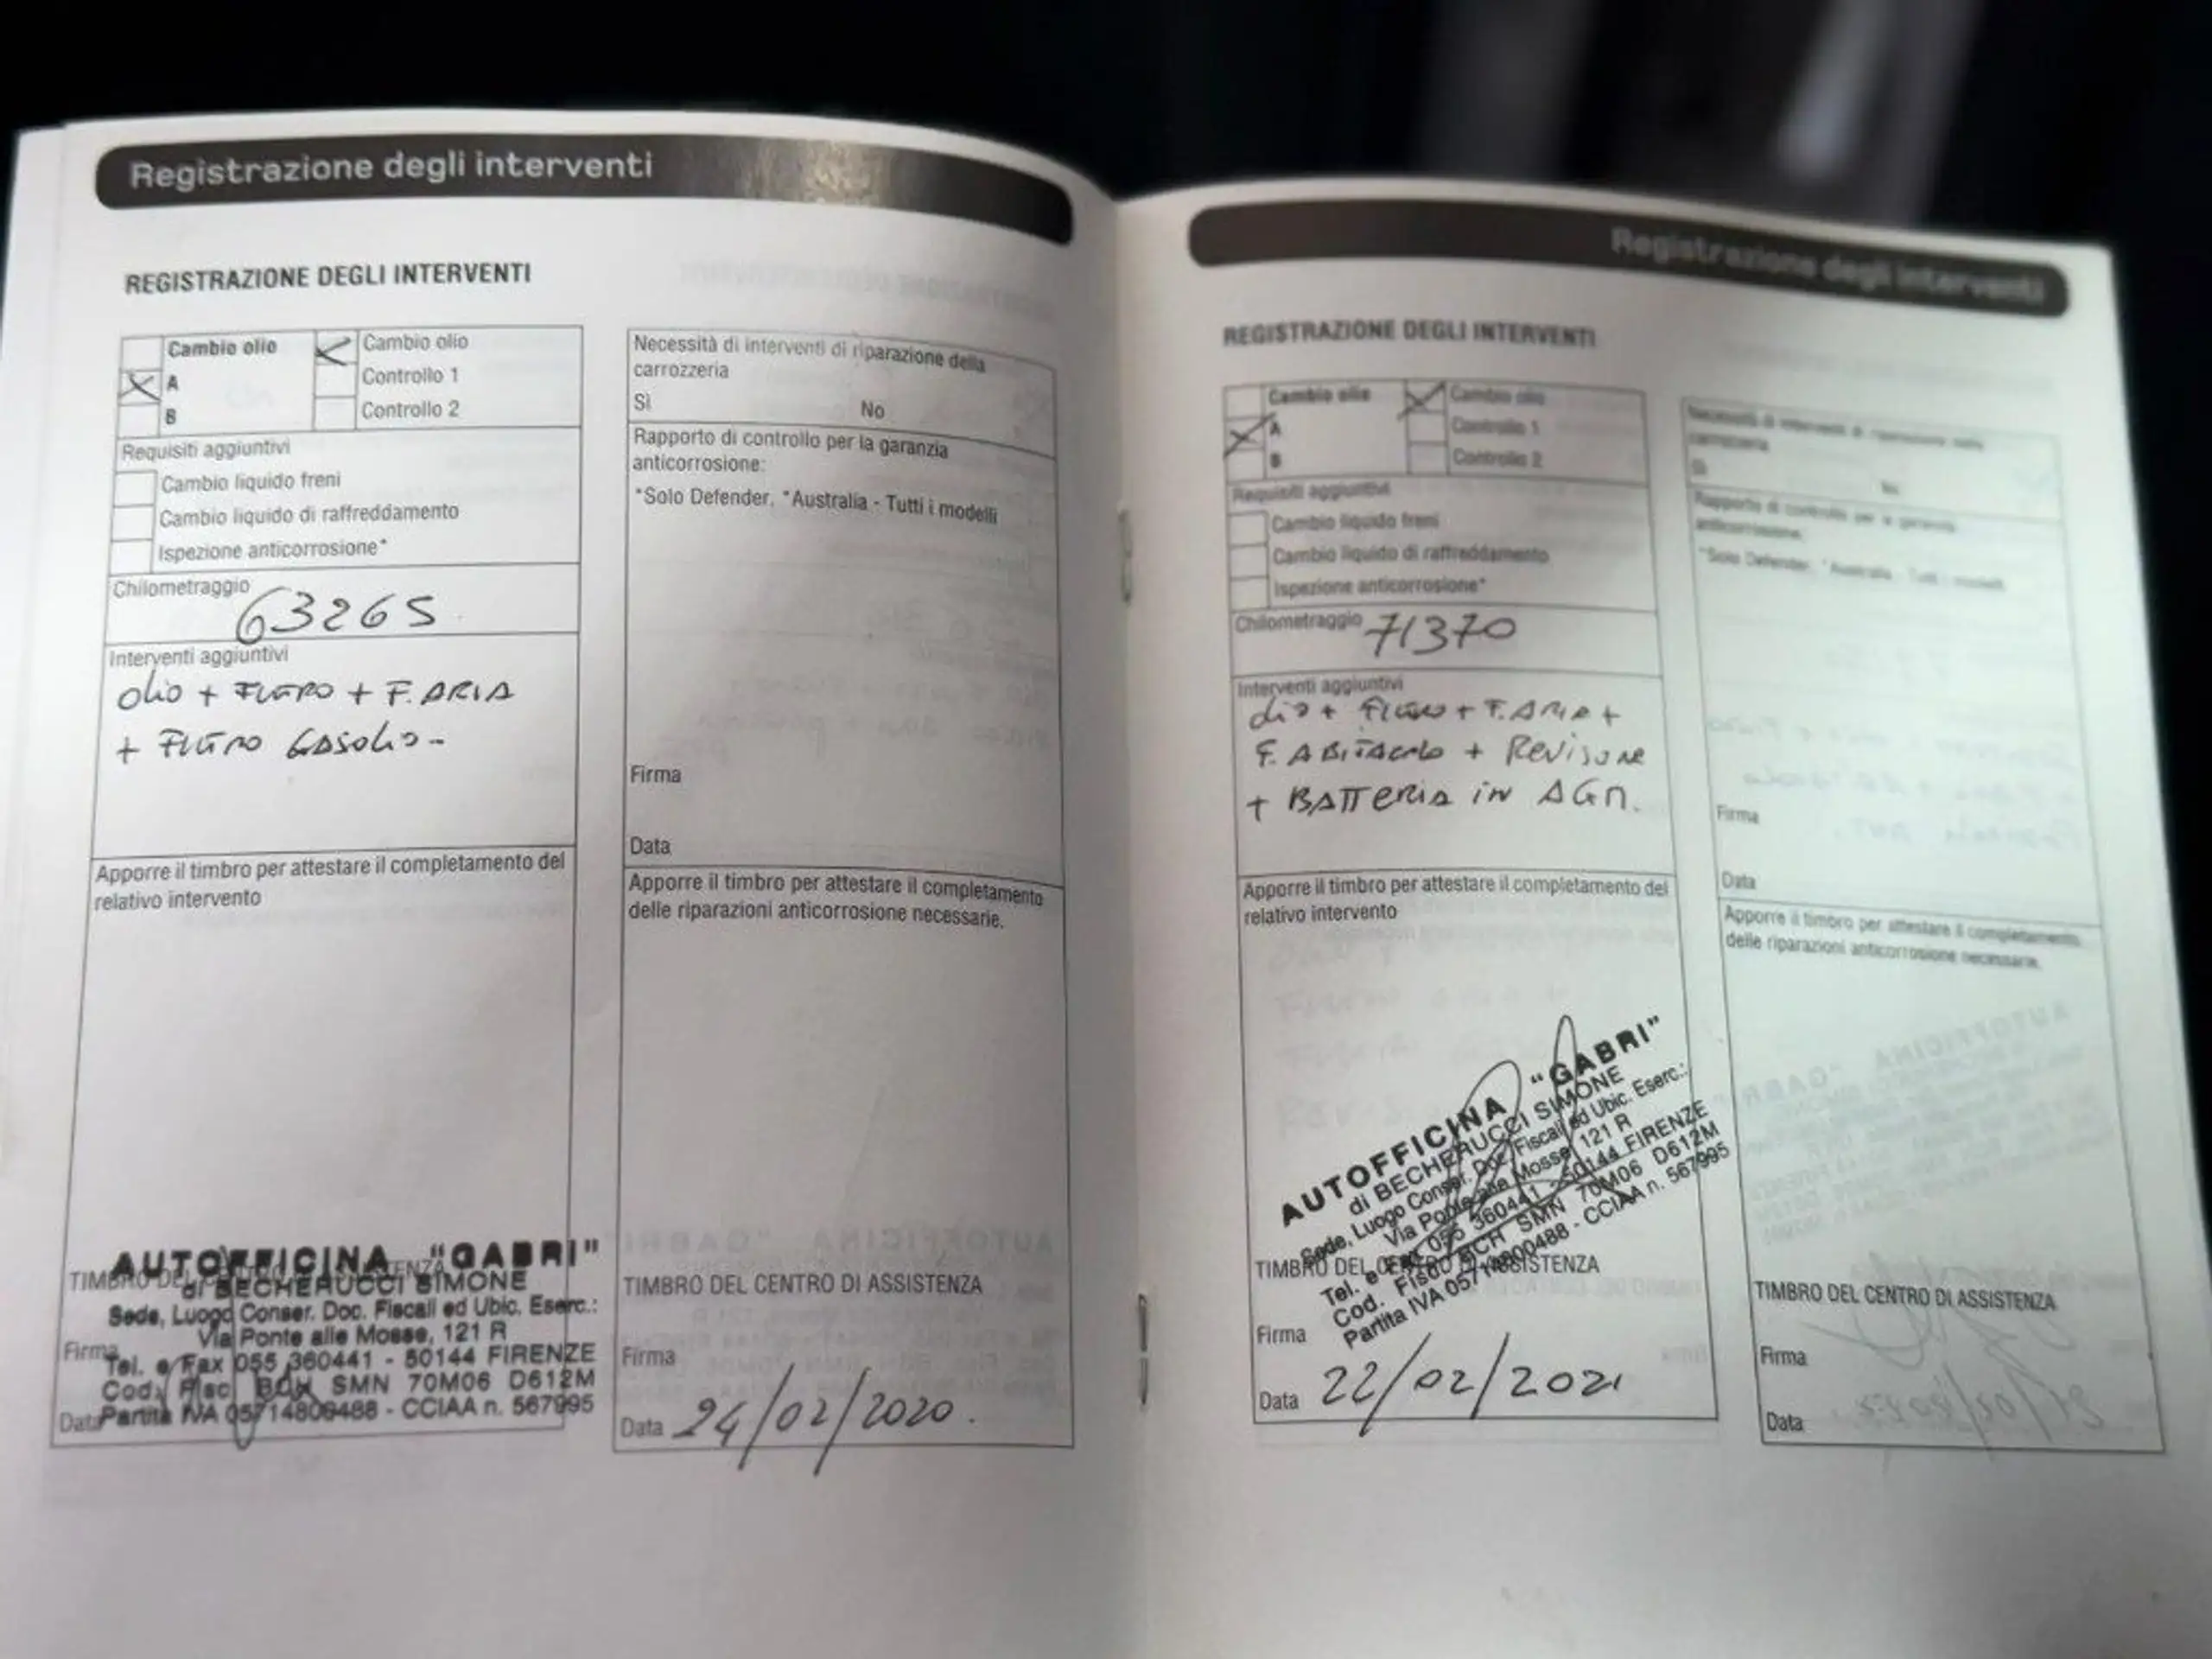 Registrazione degli interventi
REGISTRAZIONE DEGLI INTERVENTI
Cambio olio
A
B
Cambio olio
Controllo 1
Controllo 2
Requisiti aggiuntivi
Cambio liquido freni
Cambio liquido di raffreddamento
Ispezione anticorrosione*
Chilometraggio
63265
Interventi aggiuntivi
olio + FILTRO + F. ARIA
+ FILTRO GASOLIO -
Apporre il timbro per attestare il completamento del
relativo intervento
AUTOFFICINA "GABRI"
di BECHERUCCI SIMONE
Sede, Luogo Conser. Doc. Fiscali ed Ubic. Eserc.:
Via Ponte alle Mosse, 121 R
Tel. e Fax 055 360441 - 50144 FIRENZE
Cod. Fisc. BCH SMN 70M06 D612M
Partita IVA 05714800488 - CCIAA n. 567995
Firma
Data
Necessità di interventi di riparazione della
carrozzeria
Sì No
Rapporto di controllo per la garanzia
anticorrosione:
*Solo Defender. *Australia - Tutti i modelli
Firma
Data
Apporre il timbro per attestare il completamento
delle riparazioni anticorrosione necessarie.
TIMBRO DEL CENTRO DI ASSISTENZA
Firma
Data 24/02/2020.
Registrazione degli interventi
REGISTRAZIONE DEGLI INTERVENTI
Cambio olio
A
B
Cambio olio
Controllo 1
Controllo 2
Requisiti aggiuntivi
Cambio liquido freni
Cambio liquido di raffreddamento
Ispezione anticorrosione*
Chilometraggio 71370
Interventi aggiuntivi
olio + FILTRO + F. ARIA +
F. ABITACOLO + REVISIONE
+ BATTERIA IN AGM.
Apporre il timbro per attestare il completamento del
relativo intervento
AUTOFFICINA "GABRI"
di BECHERUCCI SIMONE
Sede, Luogo Conser. Doc. Fiscali ed Ubic. Eserc.:
Via Ponte alle Mosse, 121 R
Tel. e Fax 055 360441 - 50144 FIRENZE
Cod. Fisc. BCH SMN 70M06 D612M
Partita IVA 05714800488 - CCIAA n. 567995
TIMBRO DEL CENTRO DI ASSISTENZA
Firma
Data 22/02/2021
Necessità di interventi di riparazione della
carrozzeria
Sì No
Rapporto di controllo per la garanzia
anticorrosione:
*Solo Defender. *Australia - Tutti i modelli
Firma
Data
Apporre il timbro per attestare il completamento
delle riparazioni anticorrosione necessarie.
TIMBRO DEL CENTRO DI ASSISTENZA
Firma
Data